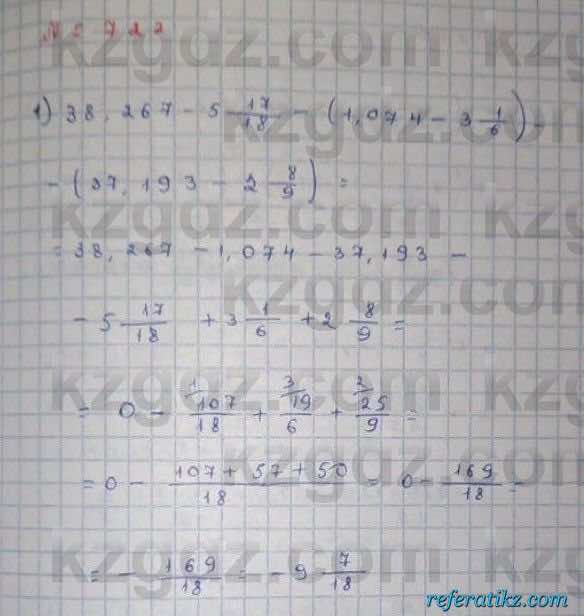 № 5 7 2 2
1) 38,267 - 5 17/18 - (1,074 - 3 1/6) -
- (37,193 - 2 8/9) =
= 38,267 - 1,074 - 37,193 -
- 5 17/18 + 3 1/6 + 2 8/9 =
= 0 - 1/ 107/18 + 3/ 19/6 + 2/ 25/9 =
= 0 - 107+57+50/18 = 0 - 169/18 =
= - 169/18 = - 9 7/18
kzgdz.com
referatikz.com